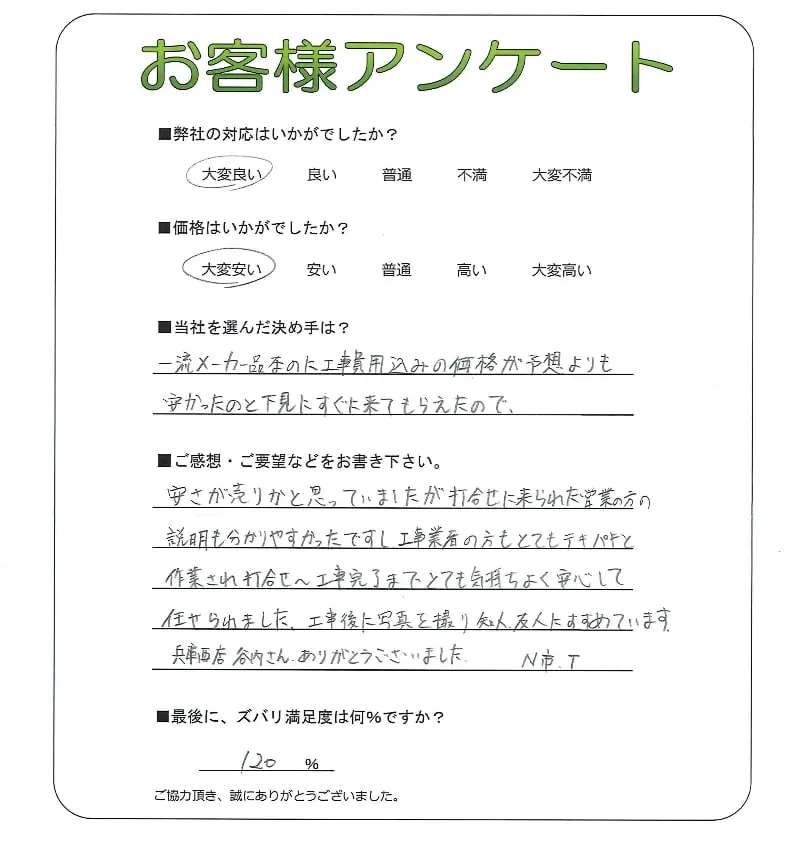 お客様アンケート
■弊社の対応はいかがでしたか?
大変良い 良い 普通 不満 大変不満
■価格はいかがでしたか?
大変安い 安い 普通 高い 大変高い
■当社を選んだ決め手は?
一流メーカー品なのに工事費用込みの価格が予想よりも
安かったのと下見にすぐに来てもらえたので、
■ご感想・ご要望などをお書き下さい。
安さが売りかと思っていましたが打合せに来られた営業の方の
説明も分かりやすかったですし工事業者の方もとてもテキパキと
作業され打合せ〜工事完了までとても気持ちよく安心して
任せられました。工事後に写真を撮り知人、友人にすすめています。
兵庫西店 谷内さん、ありがとうございました。 N市、T
■最後に、ズバリ満足度は何%ですか?
120 %
ご協力頂き、誠にありがとうございました。